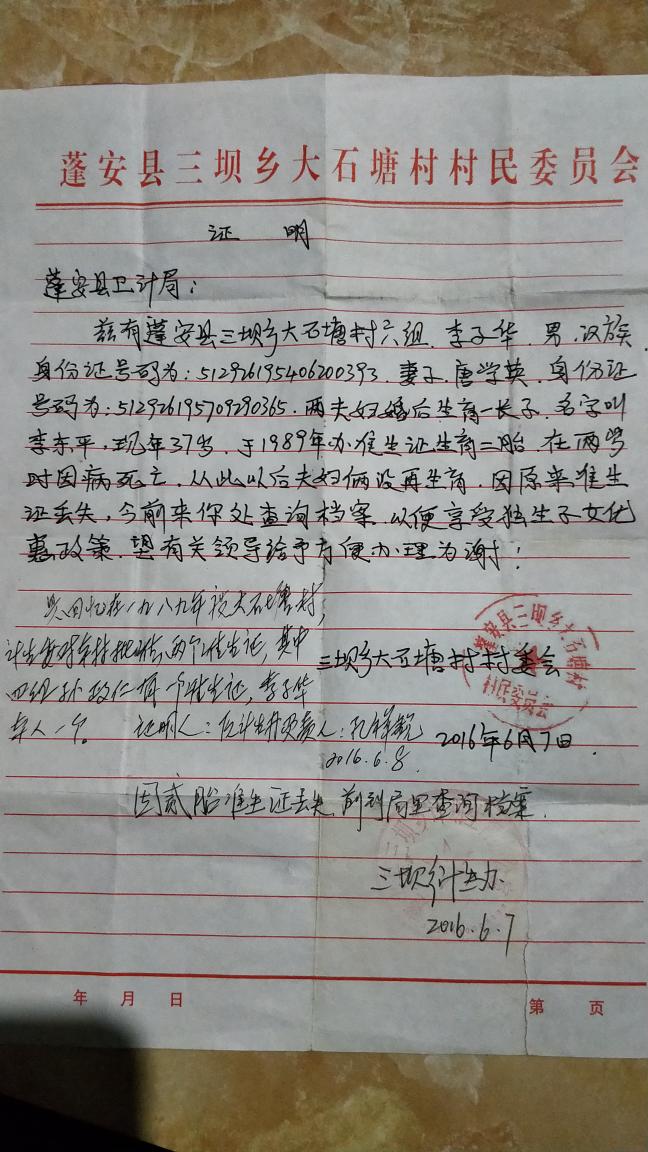 蓬安县三坝乡大石塘村村民委员会
证 明
蓬安县卫计局:
兹有蓬安县三坝乡大石塘村六组、李子华、男、汉族
身份证号码为:512926195406200393、妻子、唐学英、身份证
号码为:512926195709290365、两夫妇婚后生育一长子、名字叫
李东平、现年37岁、于1989年办准生证生育二胎、在两岁
时因病死亡、从此以后夫妇俩没再生育、因原来准生
证丢失、今前来你处查询档案、以便享受独生子女优
惠政策、望有关领导给予方便办理为谢!
回忆在一九八九年大石塘村,
计生对本村批准两个准生证,其中
四组孙政仁有一个准生证,李子华
本人一个。
证明人:任计生负责人:孔祥
2016.6.8
三坝乡大石塘村村委会
蓬安县三坝乡大石塘村
村民委员会
2016年6月7日
因贰胎准生证丢失、前到局里查询档案.
三坝乡计生办
2016.6.7
年 月 日
第 页